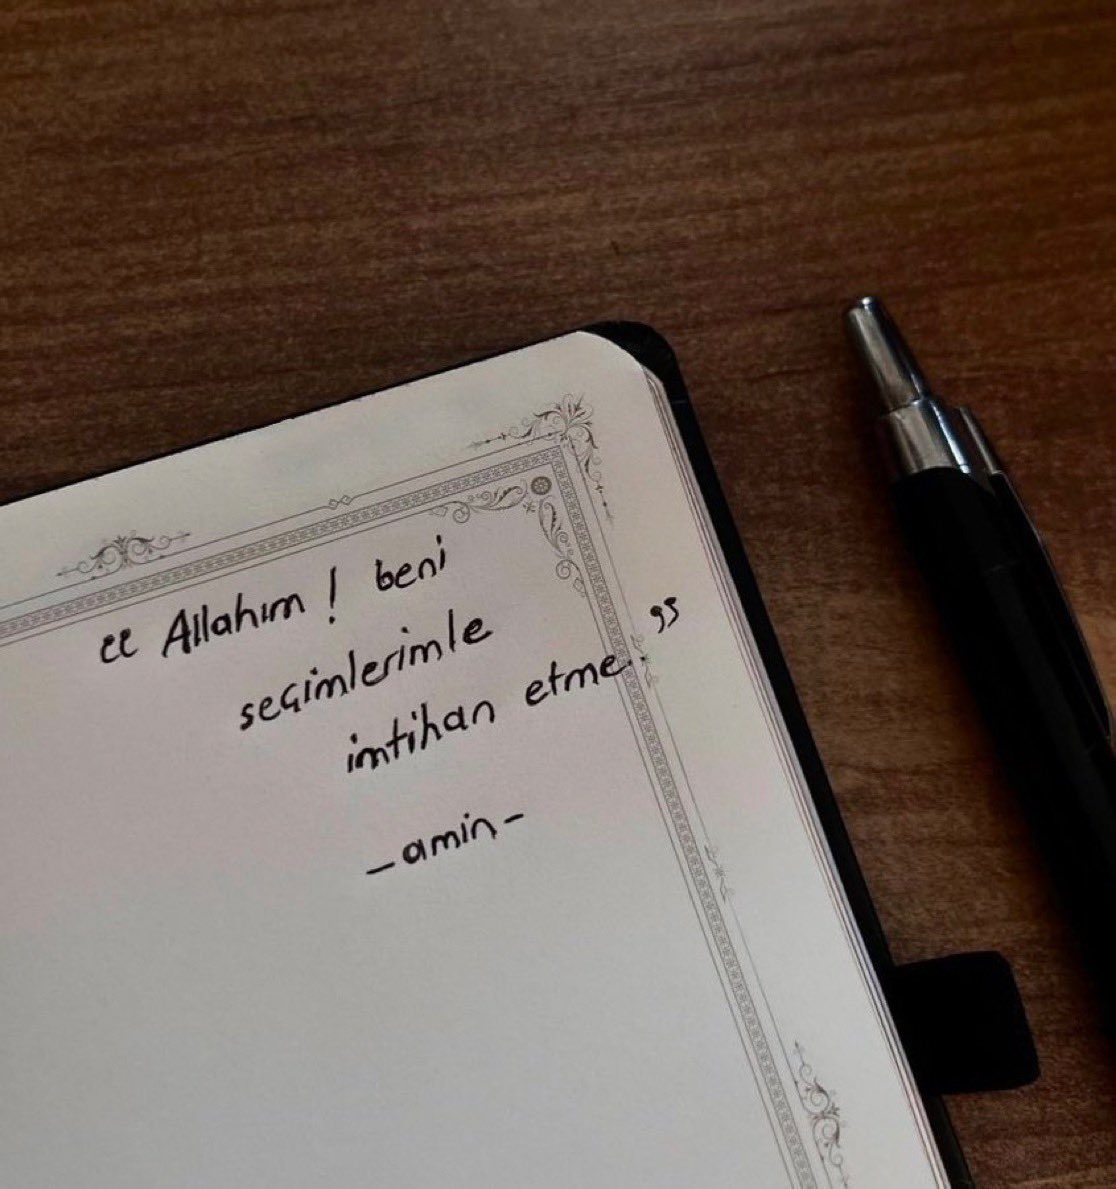 “ Allahım ! beni
seçimlerimle
imtihan etme. ”
-amin-